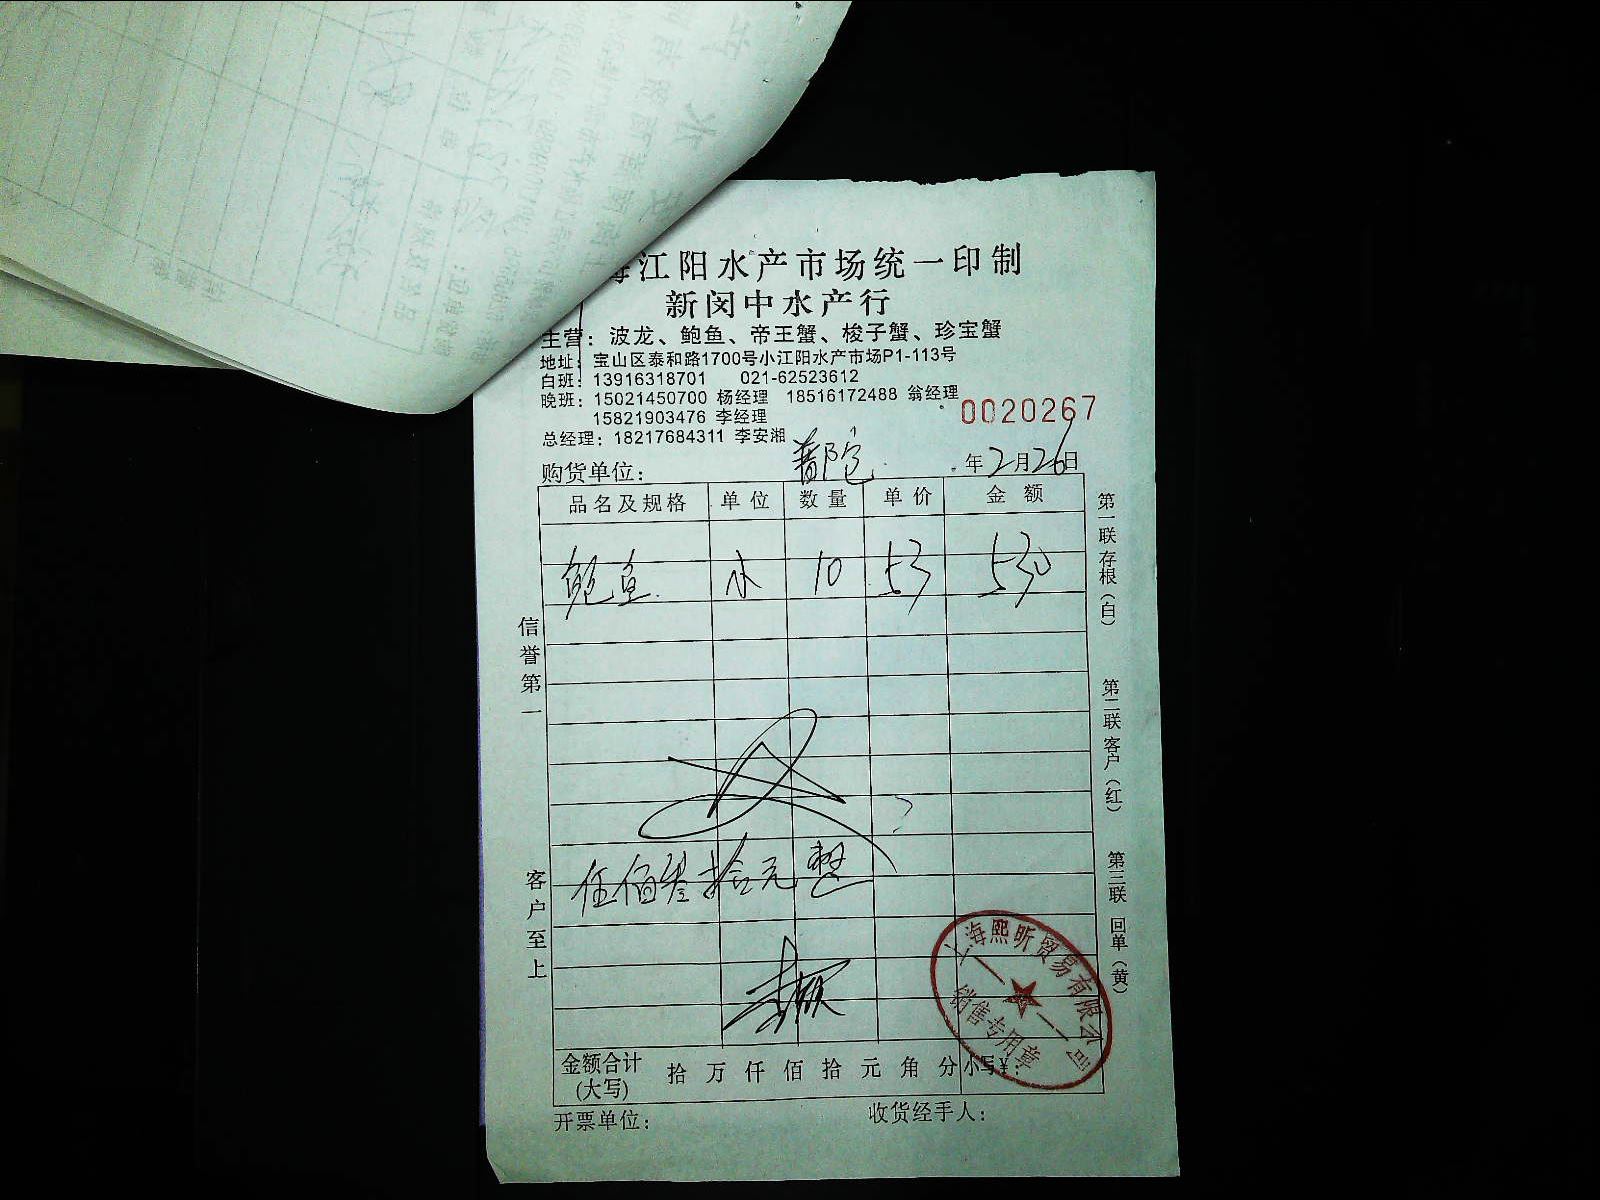 海江阳水产市场统一印制
新闵中水产行
主营：波龙、鲍鱼、帝王蟹、梭子蟹、珍宝蟹
地址：宝山区泰和路1700号小江阳水产市场P1-113号
白班：13916318701 021-62523612
晚班：15021450700 杨经理 18516172488 翁经理
15821903476 李经理
0020267
总经理：18217684311 李安湘
购货单位： 普陀 年2月26日
品名及规格 单位 数量 单价 金额
鲍鱼 小 10 53 530
伍佰叁拾元整
金额合计(大写) 拾 万 仟 佰 拾 元 角 分 小写¥：
开票单位： 收货经手人：
信誉第一
客户至上
第一联 存根（白）
第二联 客户（红）
第三联 回单（黄）
上海熙昕贸易有限公司
销售专用章